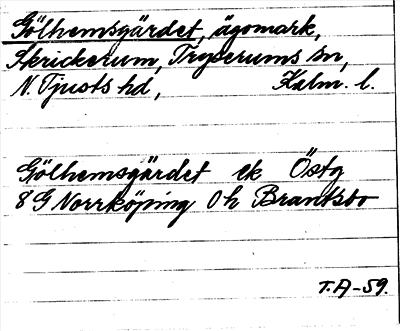 Gölhemsgärdet, ägomark,
Skrickerum, Tryserums sn,
N. Tjusts hd, Kalm. l.
Gölhemsgärdet ek Östg
8 G Norrköping 0 h Brantsbo
T.A-59.